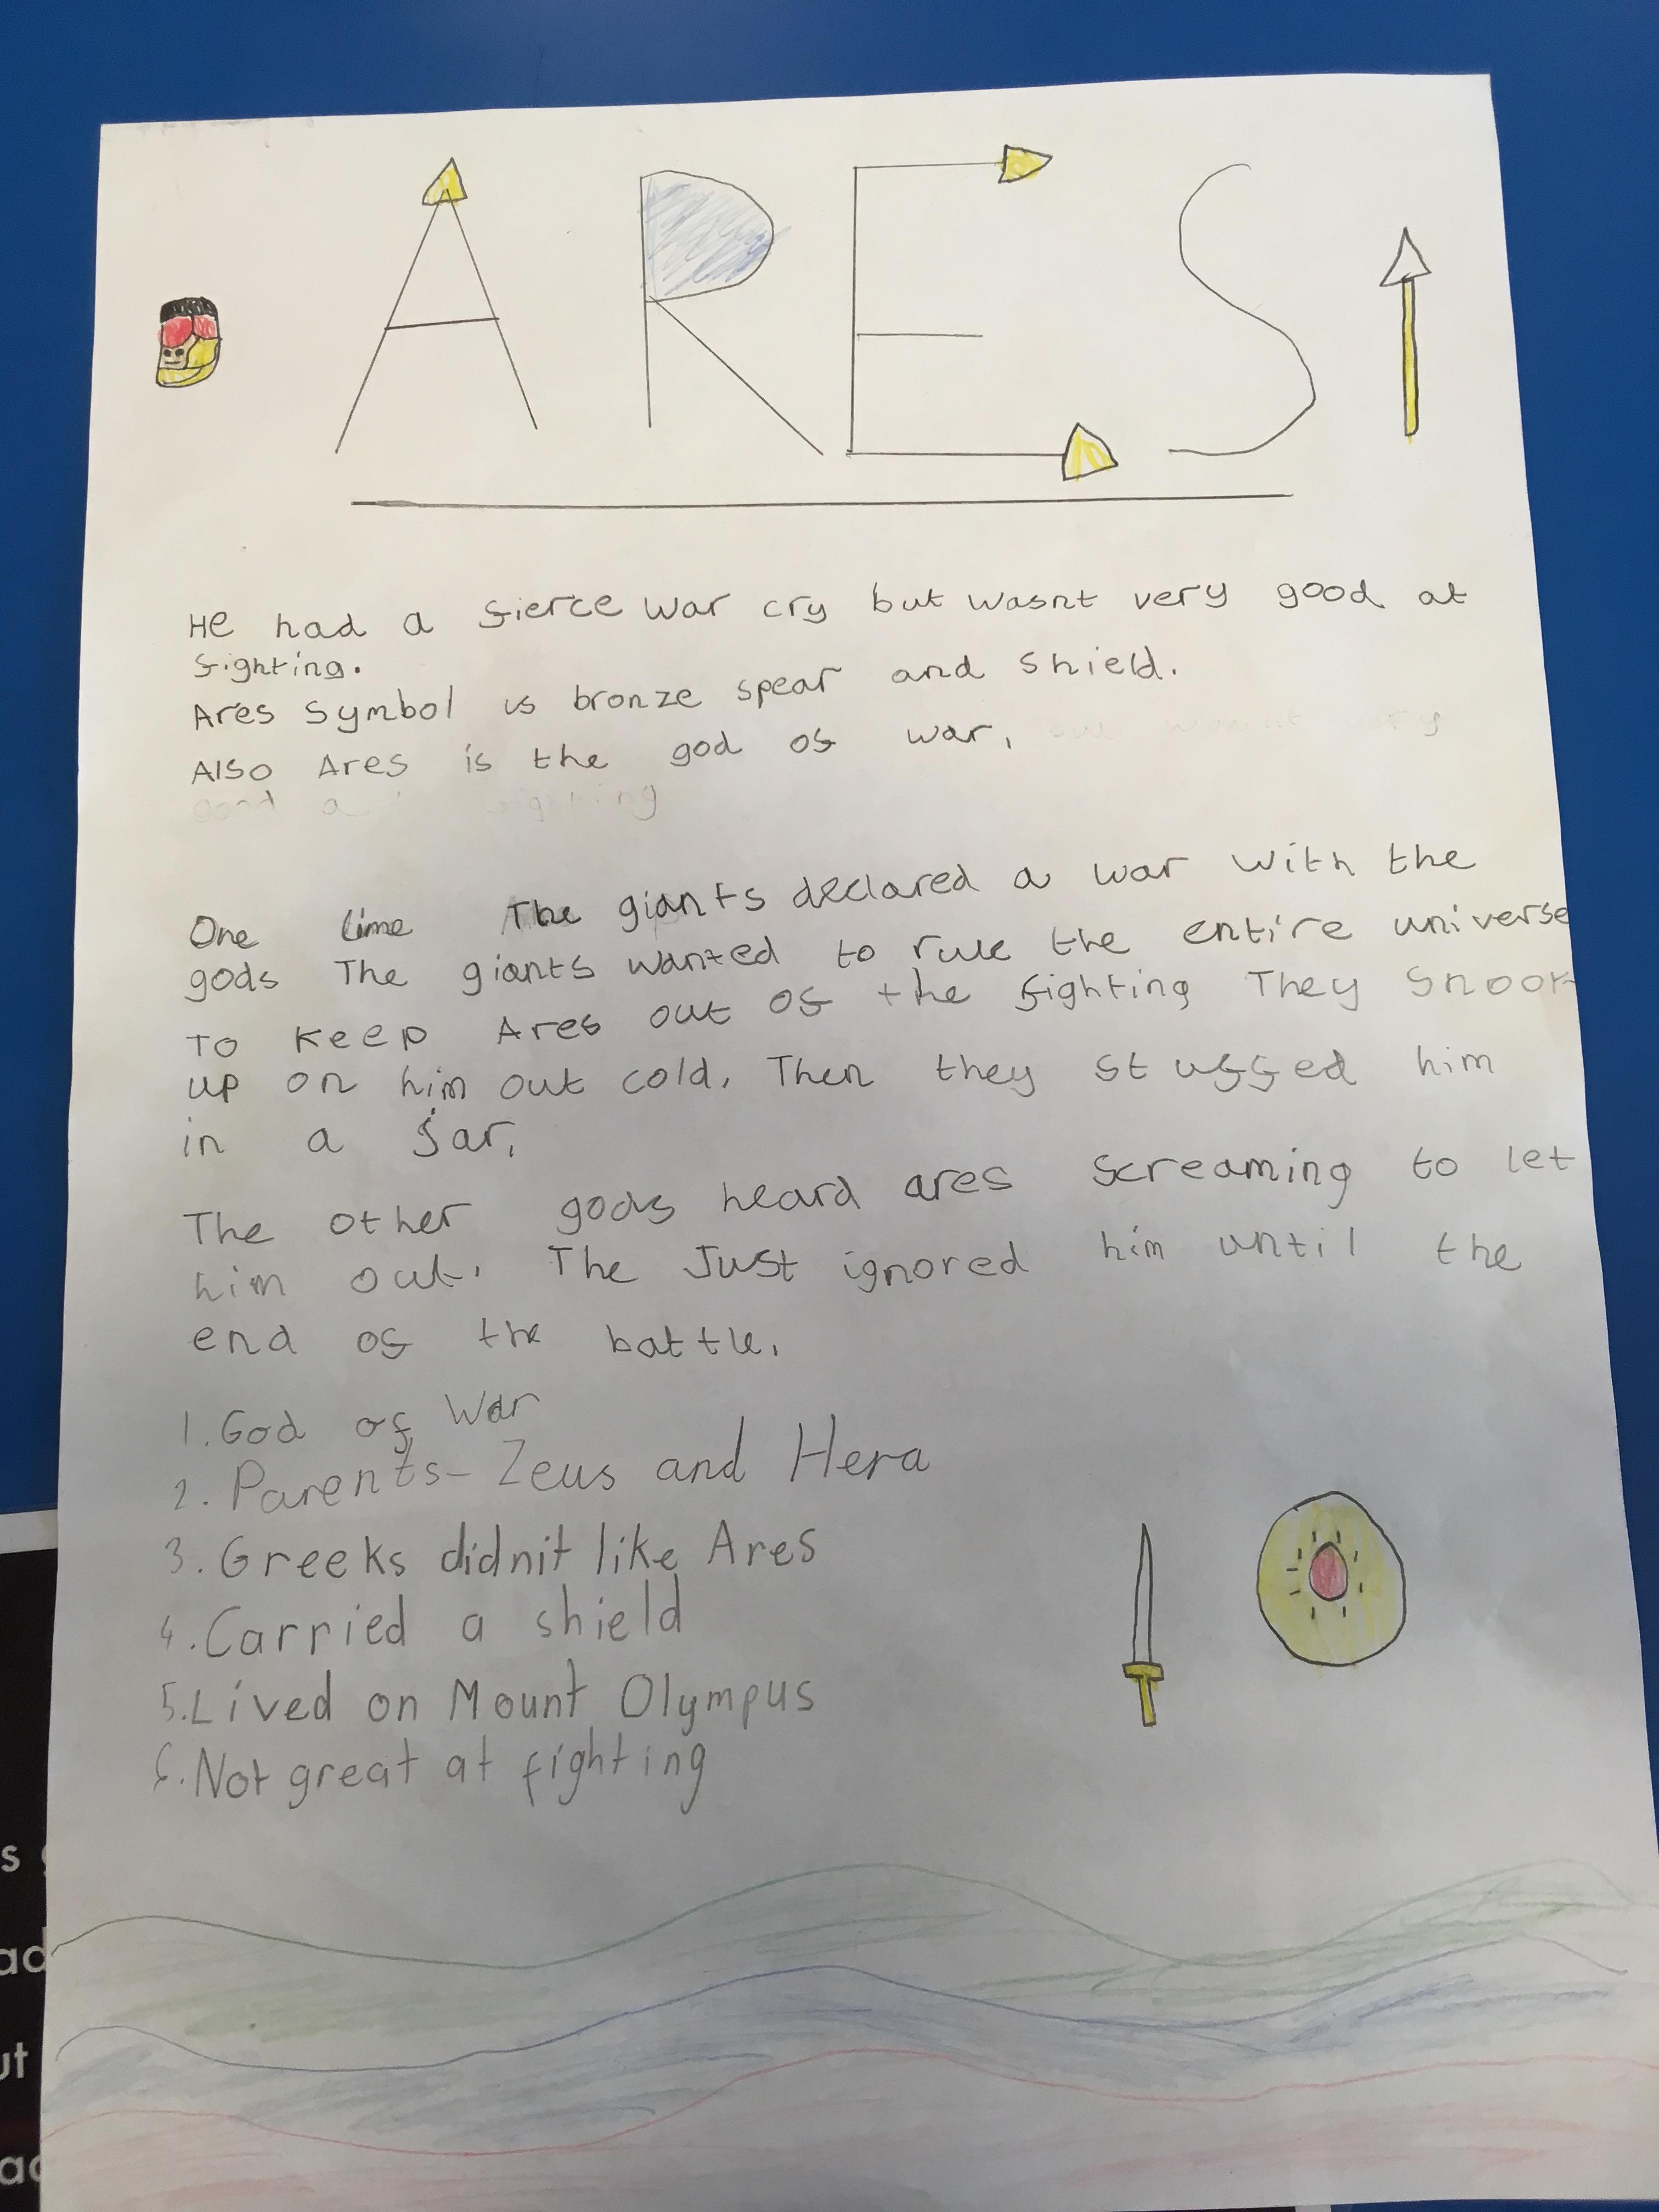 ARES
He had a fierce war cry but wasnt very good at
fighting.
Ares Symbol is bronze spear and shield.
Also Ares is the god of war.
One time The giants declared a war with the
gods The giants wanted to rule the entire universe
To keep Ares out of the fighting They snook
up on him out cold. Then they stuffed him
in a jar.
The other gods heard ares screaming to let
him out. The Just ignored him until the
end of the battle.
1. God of War
2. Parents- Zeus and Hera
3. Greeks didnit like Ares
4. Carried a shield
5. Lived on Mount Olympus
6. Not great at fighting
s
ad
ut